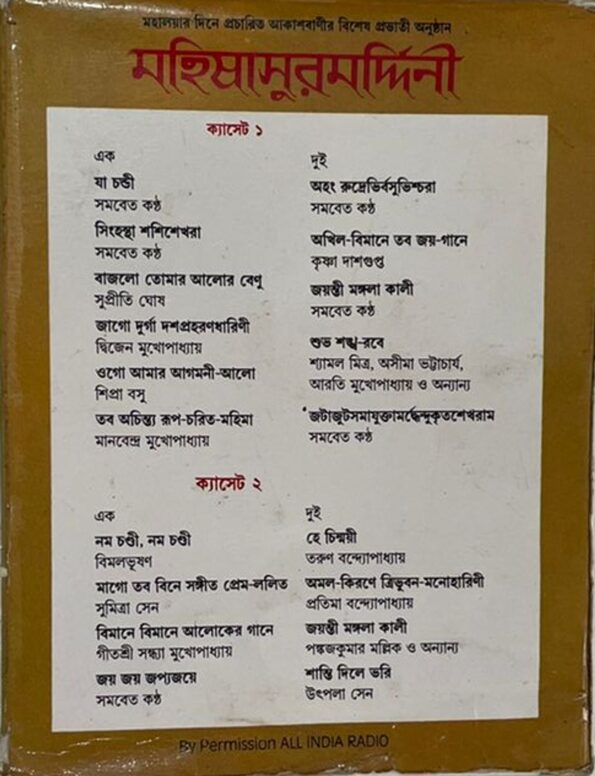 মহালয়ার দিনে প্রচারিত আকাশবাণীর বিশেষ প্রভাতী অনুষ্ঠান
মহিষাসুরমর্দ্দিনী
ক্যাসেট ১
এক
যা চণ্ডী
সমবেত কণ্ঠ
সিংহস্থা শশিশেখরা
সমবেত কণ্ঠ
বাজলো তোমার আলোর বেণু
সুপ্রীতি ঘোষ
জাগো দুর্গা দশপ্রহরণধারিণী
দ্বিজেন মুখোপাধ্যায়
ওগো আমার আগমনী-আলো
শিপ্রা বসু
তব অচিন্ত্য রূপ-চরিত-মহিমা
মানবেন্দ্র মুখোপাধ্যায়
দুই
অহং রুদ্রেভির্বসুভিশ্চরা
সমবেত কণ্ঠ
অখিল-বিমানে তব জয়-গানে
কৃষ্ণা দাশগুপ্ত
জয়ন্তী মঙ্গলা কালী
সমবেত কণ্ঠ
শুভ শঙ্খ-রবে
শ্যামল মিত্র, অসীমা ভট্টাচার্য,
আরতি মুখোপাধ্যায় ও অন্যান্য
জটাজুটসমাযুক্তামর্দ্ধেন্দুকৃতশেখরাম
সমবেত কণ্ঠ
ক্যাসেট ২
এক
নম চণ্ডী, নম চণ্ডী
বিমলভূষণ
মাগো তব বিনে সঙ্গীত প্রেম-ললিত
সুমিত্রা সেন
বিমানে বিমানে আলোকের গানে
গীতশ্রী সন্ধ্যা মুখোপাধ্যায়
জয় জয় জপ্যজয়ে
সমবেত কণ্ঠ
দুই
হে চিন্ময়ী
তরুণ বন্দ্যোপাধ্যায়
অমল-কিরণে ত্রিভুবন-মনোহারিণী
প্রতিমা বন্দ্যোপাধ্যায়
জয়ন্তী মঙ্গলা কালী
পঙ্কজকুমার মল্লিক ও অন্যান্য
শান্তি দিলে ভরি
উৎপলা সেন
By Permission ALL INDIA RADIO